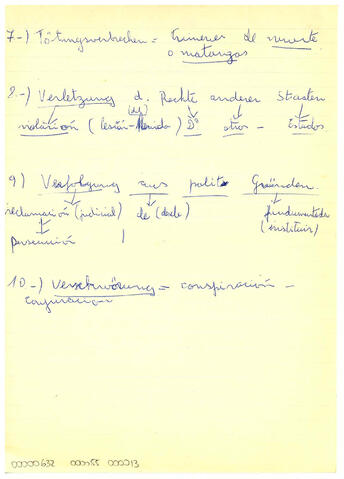 7.-) Tötungsverbrechen = crímenes de muerte
o matanzas
8.-) Verletzung d. Rechte anderer Staaten
(der)
violación (lesión-herida) Dº otros - Estados
9) Verfolgung aus polit. Gründen
reclamación (judicial) de (desde)
(instituir)
persecución
10-) Verschwörung = conspiración -
conjuración
00000632 000455 000013